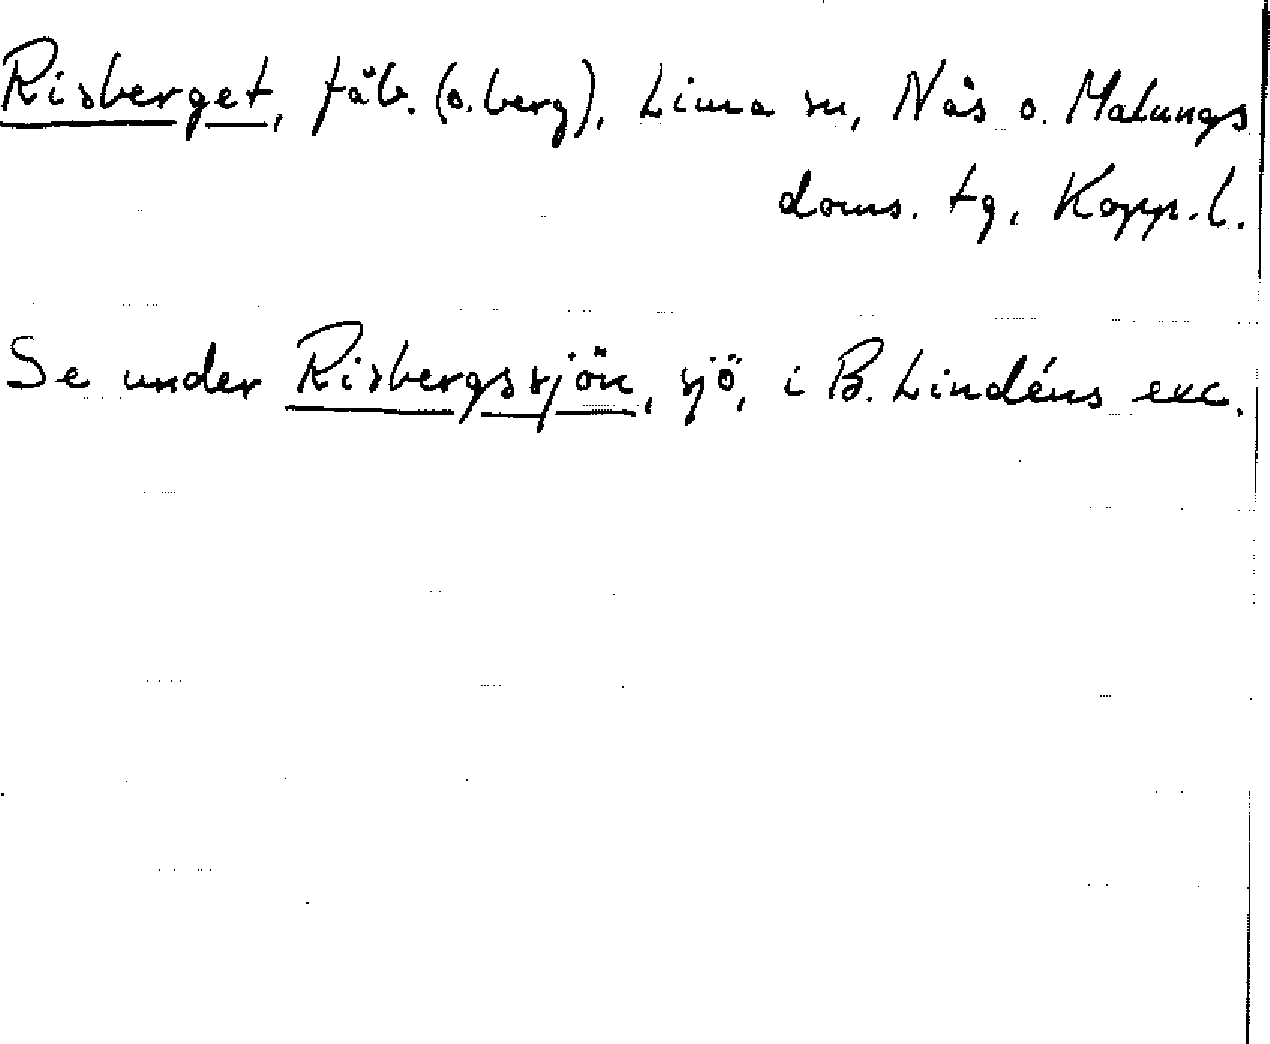 Risberget, fäb. (o. berg), Lima sn, Nås o. Malungs
doms. tg, Kopp. l.
Se under Risbergssjön, sjö, i B. Lindéns exc.